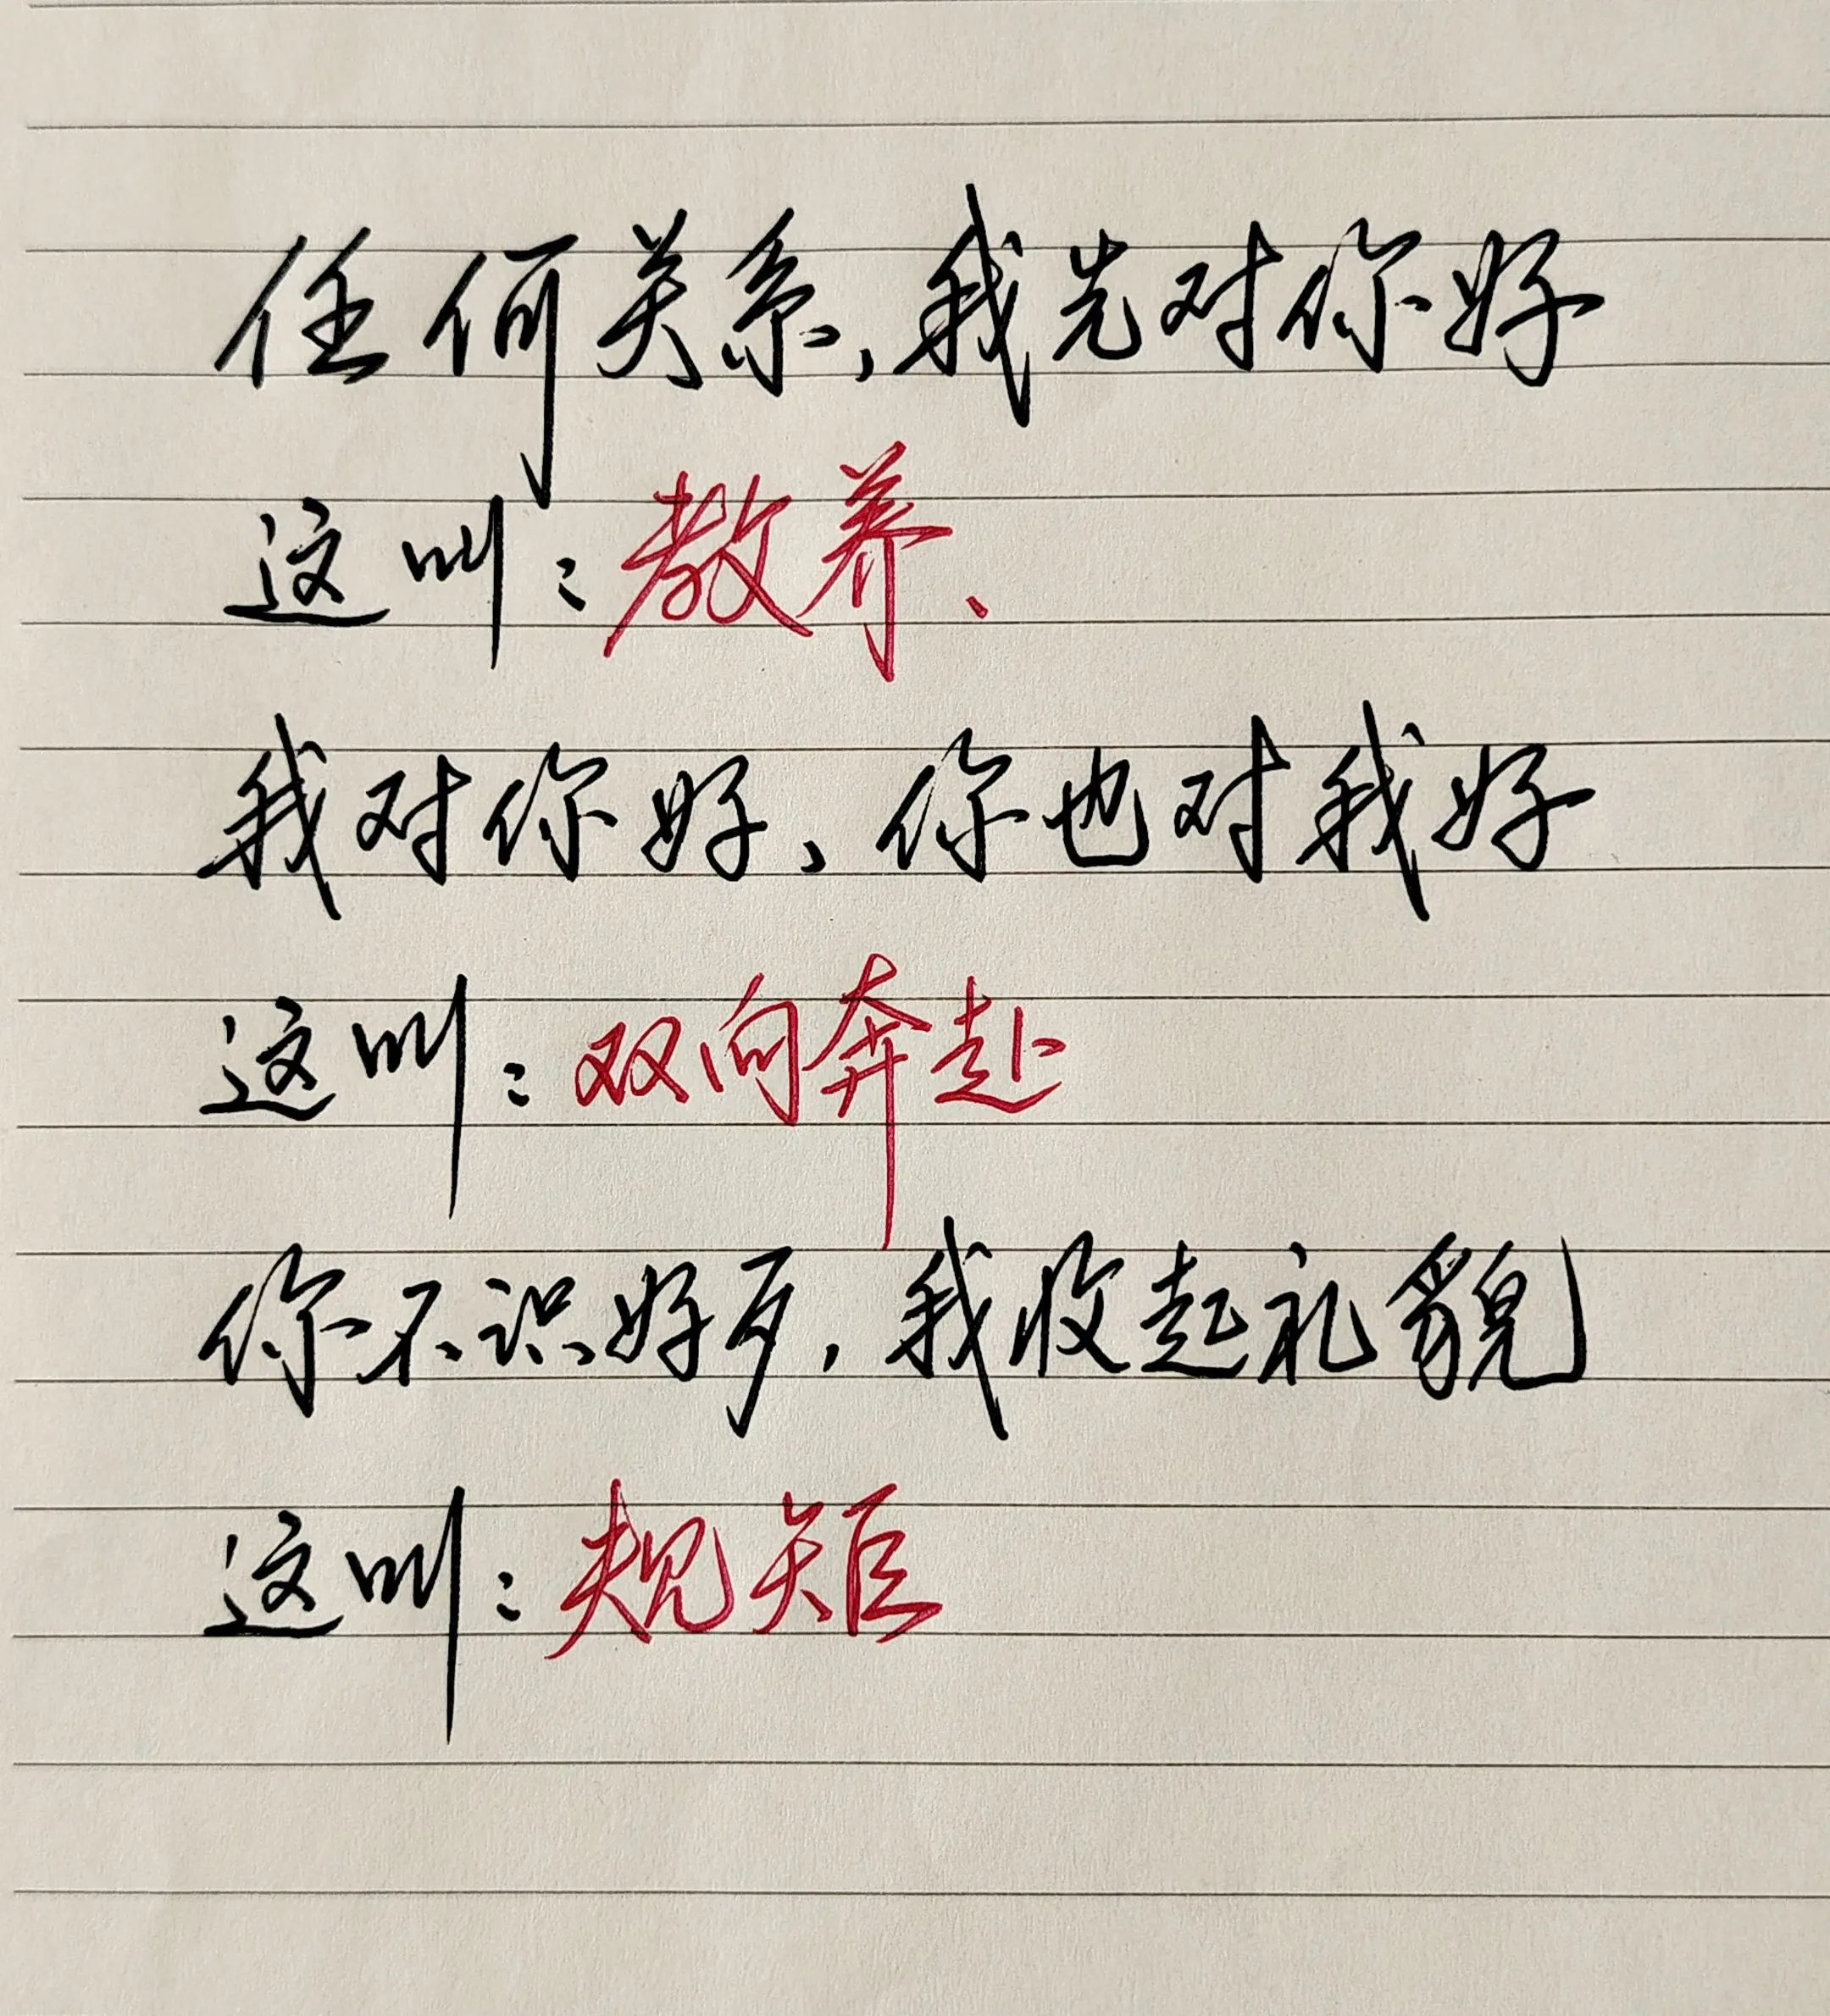 任何关系,我先对你好
这叫:教养、
我对你好、你也对我好
这叫:双向奔赴
你不识好歹,我收起礼貌
这叫:规矩